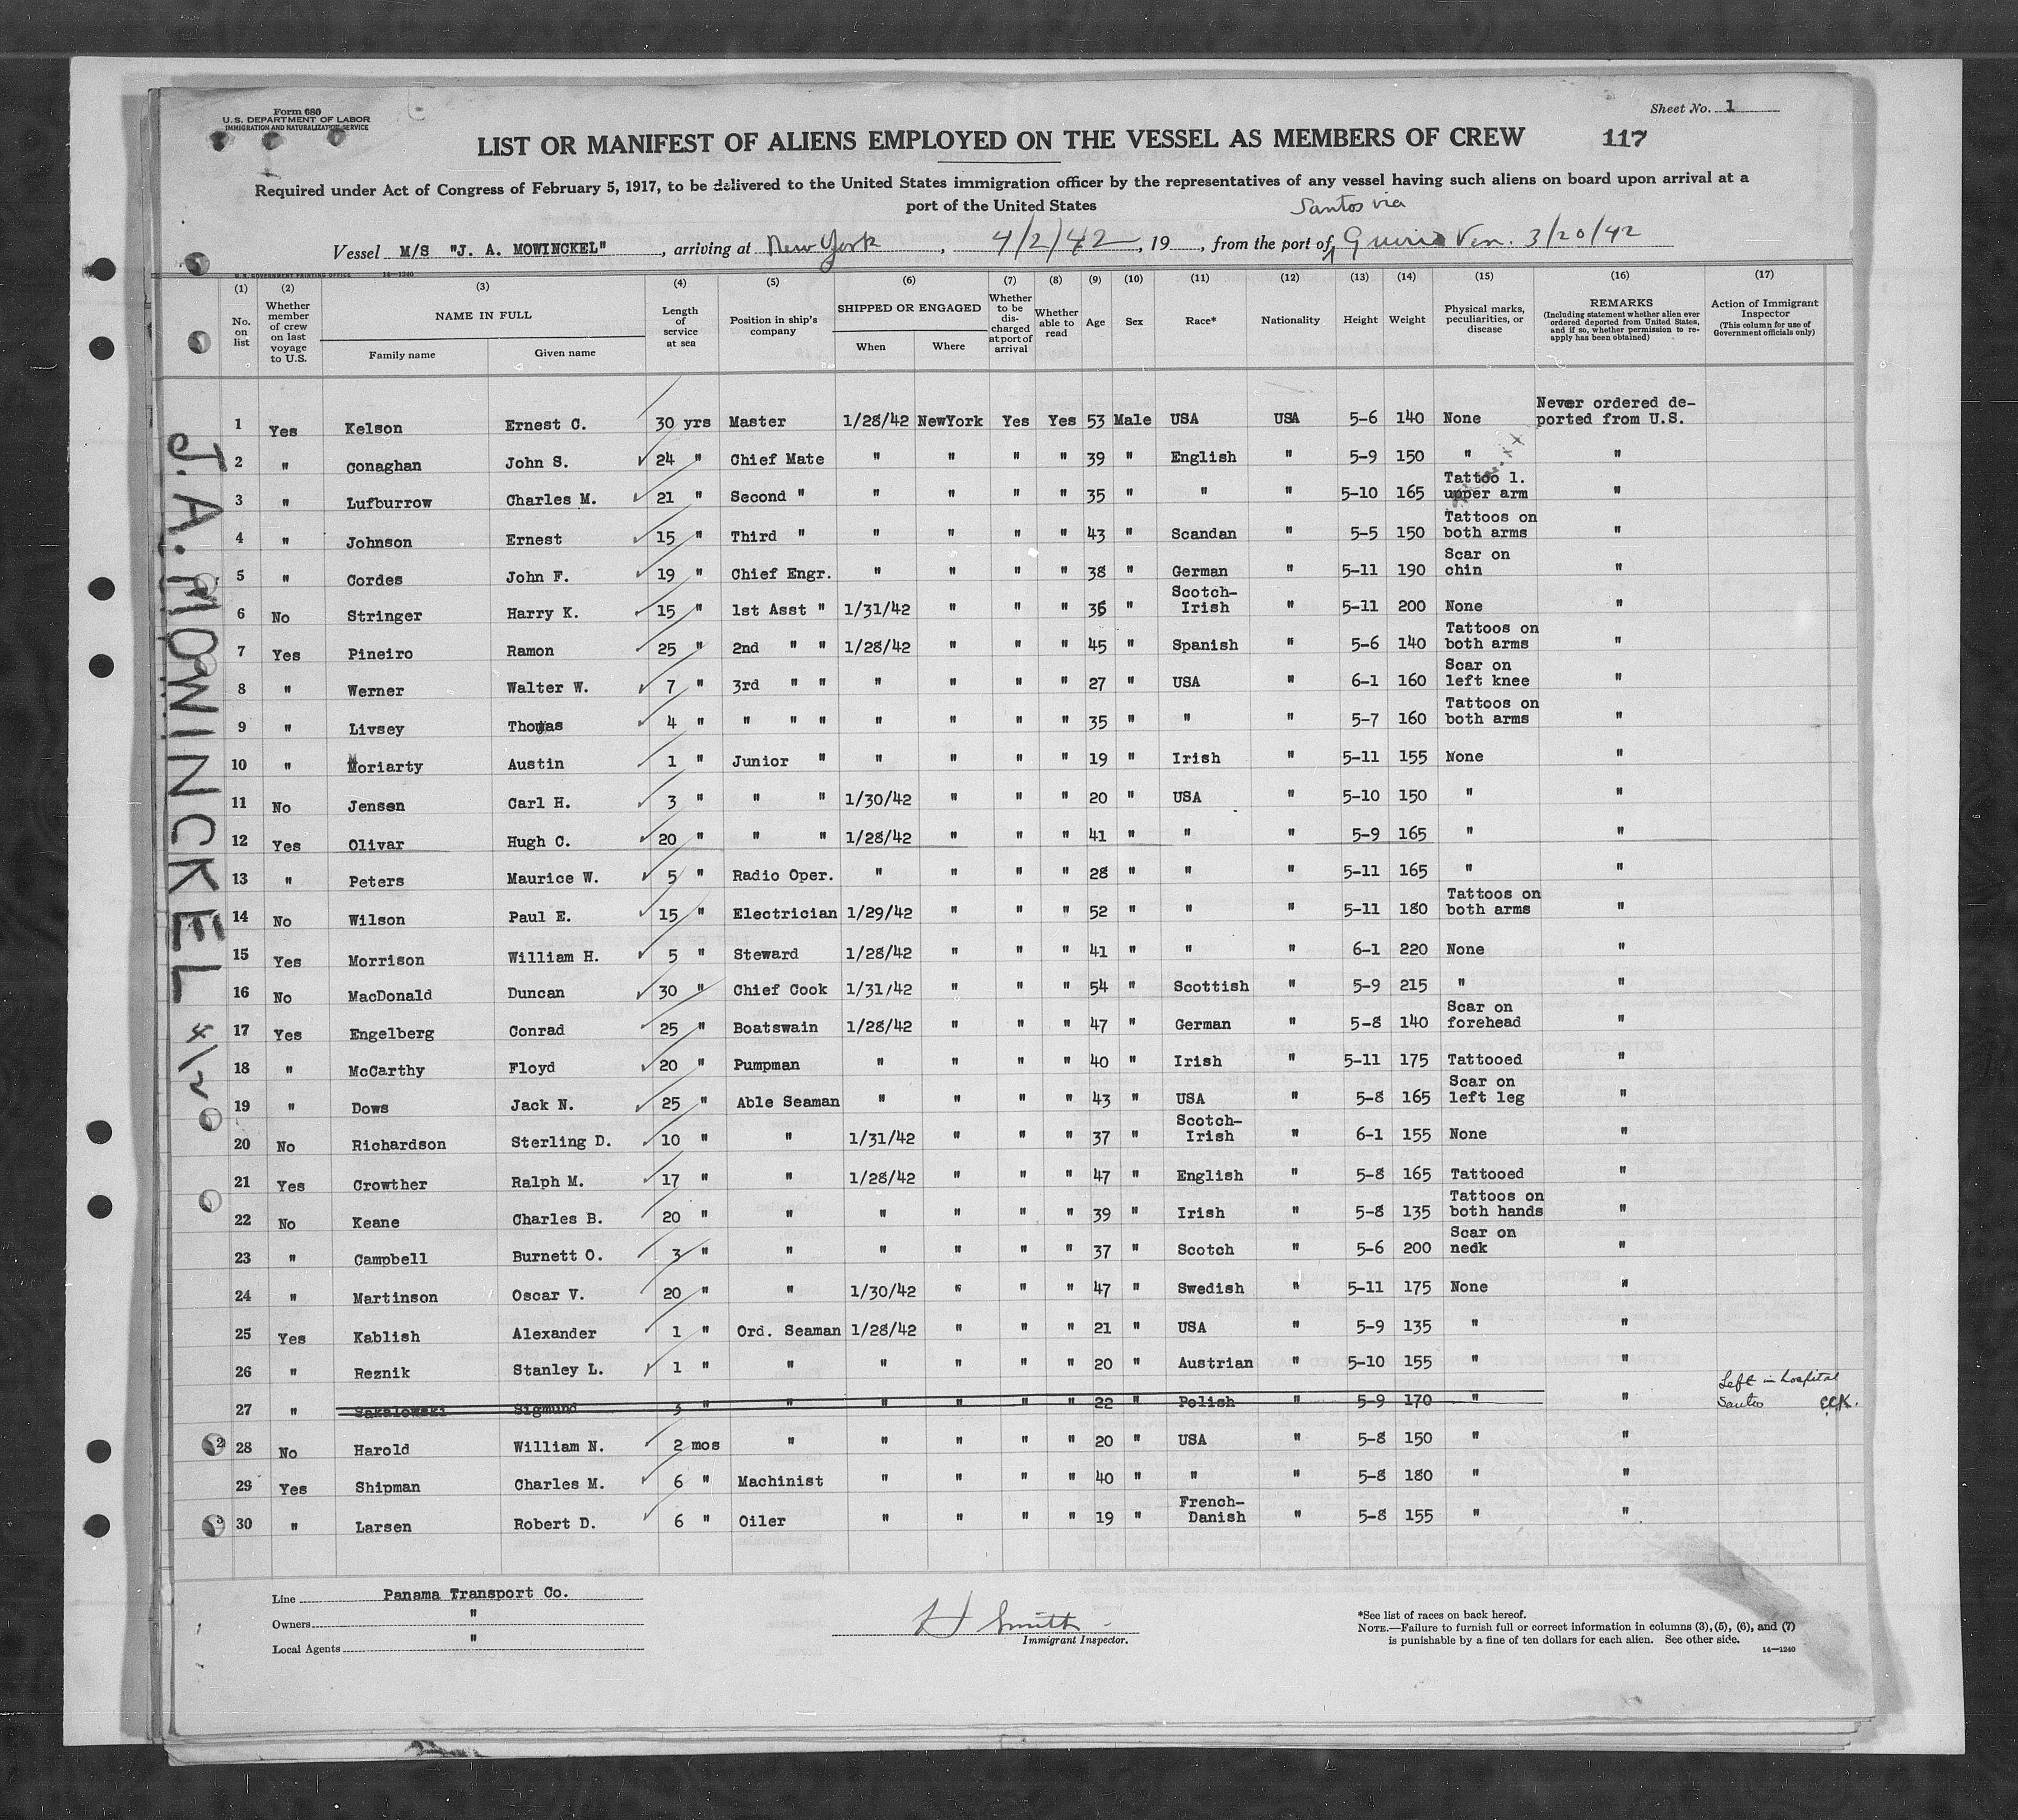 Form 680
U.S. DEPARTMENT OF LABOR
IMMIGRATION AND NATURALIZATION SERVICE
Sheet No. 1
LIST OR MANIFEST OF ALIENS EMPLOYED ON THE VESSEL AS MEMBERS OF CREW 117
Required under Act of Congress of February 5, 1917, to be delivered to the United States immigration officer by the representatives of any vessel having such aliens on board upon arrival at a
port of the United States
Santos via
Vessel M/S "J. A. MOWINCKEL", arriving at New York, 4/2/42, 19, from the port of Guiria Ven. 3/20/42
U.S. GOVERNMENT PRINTING OFFICE 14—1240
(1) (2) (3) (4) (5) (6) (7) (8) (9) (10) (11) (12) (13) (14) (15) (16) (17)
No. on list
Whether member of crew on last voyage to U.S.
NAME IN FULL
Family name
Given name
Length of service at sea
Position in ship's company
SHIPPED OR ENGAGED
When
Where
Whether to be discharged at port of arrival
Whether able to read
Age
Sex
Race*
Nationality
Height
Weight
Physical marks, peculiarities, or disease
REMARKS
(Including statement whether alien ever ordered deported from United States, and if so, whether permission to re-apply has been obtained)
Action of Immigrant Inspector
(This column for use of Government officials only)
1 Yes Kelson Ernest C. 30 yrs Master 1/28/42 NewYork Yes Yes 53 Male USA USA 5-6 140 None Never ordered de-ported from U.S.
2 " Conaghan John S. 24 " Chief Mate " " " " 39 " English " 5-9 150 " "
3 " Lufburrow Charles M. 21 " Second " " " " " 35 " " " 5-10 165 Tattoo l. upper arm "
4 " Johnson Ernest 15 " Third " " " " " 43 " Scandan " 5-5 150 Tattoos on both arms "
5 " Cordes John F. 19 " Chief Engr. " " " " 38 " German " 5-11 190 Scar on chin "
6 No Stringer Harry K. 15 " 1st Asst " 1/31/42 " " " 36 " Scotch-Irish " 5-11 200 None "
7 Yes Pineiro Ramon 25 " 2nd " " 1/28/42 " " " 45 " Spanish " 5-6 140 Tattoos on both arms "
8 " Werner Walter W. 7 " 3rd " " " " " " 27 " USA " 6-1 160 Scar on left knee "
9 " Livsey Thomas 4 " " " " " " " " 35 " " " 5-7 160 Tattoos on both arms "
10 " Moriarty Austin 1 " Junior " " " " " 19 " Irish " 5-11 155 None "
11 No Jensen Carl H. 3 " " " 1/30/42 " " " 20 " USA " 5-10 150 " "
12 Yes Olivar Hugh C. 20 " " " 1/28/42 " " " 41 " " " 5-9 165 " "
13 " Peters Maurice W. 5 " Radio Oper. " " " " 28 " " " 5-11 165 " "
14 No Wilson Paul E. 15 " Electrician 1/29/42 " " " 52 " " " 5-11 180 Tattoos on both arms "
15 Yes Morrison William H. 5 " Steward 1/28/42 " " " 41 " " " 6-1 220 None "
16 No MacDonald Duncan 30 " Chief Cook 1/31/42 " " " 54 " Scottish " 5-9 215 " "
17 Yes Engelberg Conrad 25 " Boatswain 1/28/42 " " " 47 " German " 5-8 140 Scar on forehead "
18 " McCarthy Floyd 20 " Pumpman " " " " 40 " Irish " 5-11 175 Tattooed "
19 " Dows Jack N. 25 " Able Seaman " " " " 43 " USA " 5-8 165 Scar on left leg "
20 No Richardson Sterling D. 10 " " 1/31/42 " " " 37 " Scotch-Irish " 6-1 155 None "
21 Yes Crowther Ralph M. 17 " " 1/28/42 " " " 47 " English " 5-8 165 Tattooed "
22 No Keane Charles B. 20 " " " " " " 39 " Irish " 5-8 135 Tattoos on both hands "
23 " Campbell Burnett O. 3 " " " " " " 37 " Scotch " 5-6 200 Scar on nedk "
24 " Martinson Oscar V. 20 " " 1/30/42 " " " 47 " Swedish " 5-11 175 None "
25 Yes Kablish Alexander 1 " Ord. Seaman 1/28/42 " " " 21 " USA " 5-9 135 " "
26 " Reznik Stanley L. 1 " " " " " " 20 " Austrian " 5-10 155 " "
27 " Sakalowski Sigmund 3 " " " " " " 22 " Polish " 5-9 170 " " Left in hospital Santos ECK.
28 No Harold William N. 2 mos " " " " " 20 " USA " 5-8 150 " "
29 Yes Shipman Charles M. 6 " Machinist " " " " 40 " " " 5-8 180 " "
30 " Larsen Robert D. 6 " Oiler " " " " 19 " French-Danish " 5-8 155 " "
J. A. MOWINCKEL 4/2
2
3
Line Panama Transport Co.
Owners "
Local Agents "
H Smith
Immigrant Inspector.
*See list of races on back hereof.
NOTE.—Failure to furnish full or correct information in columns (3), (5), (6), and (7)
is punishable by a fine of ten dollars for each alien. See other side.
14—1240